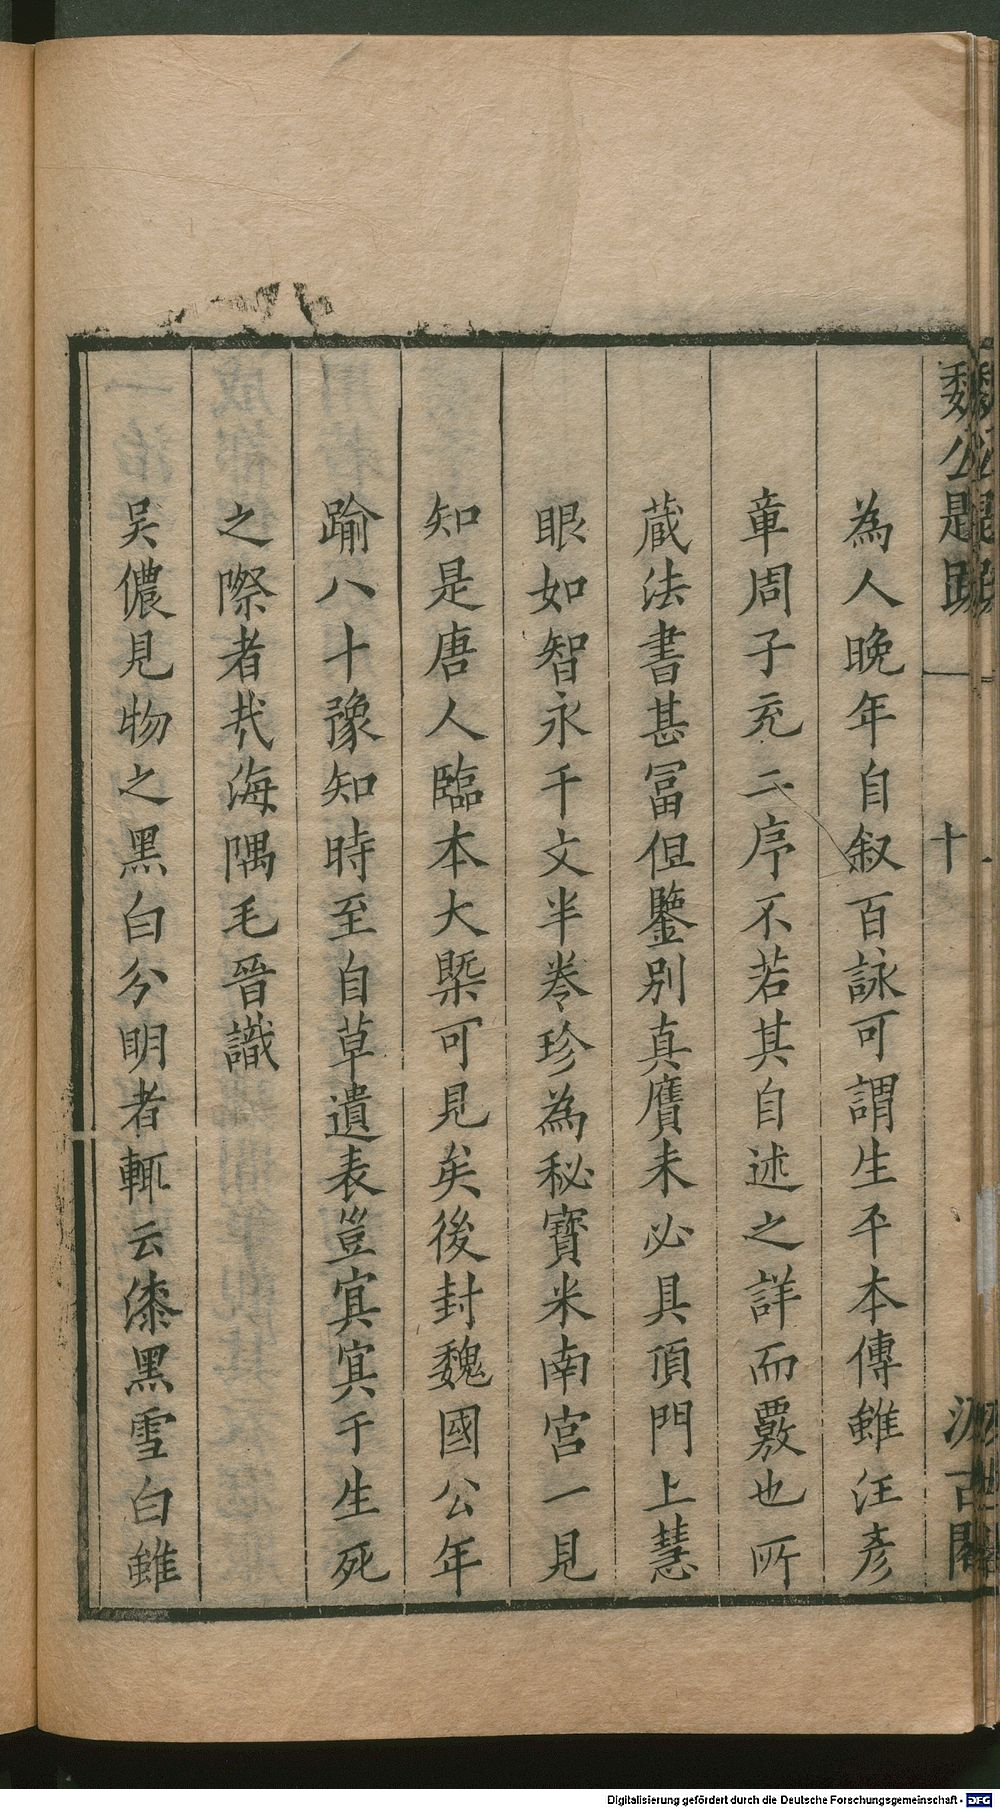 魏公題跋
十
汲古閣
為人晚年自叙百詠可謂生平本傳雖汪彥
章周子充二序不若其自述之詳而覈也所
蔵法書甚冨但鑒別真贋未必具頂門上慧
眼如智永千文半巻珍為秘寶米南宮一見
知是唐人臨本大槩可見矣後封魏國公年
踰八十豫知時至自草遺表豈寘寘于生死
之際者㦲海隅毛晉識
吴儂見物之黑白分明者輒云漆黑雪白雖
Digitalisierung gefördert durch die Deutsche Forschungsgemeinschaft - DFG